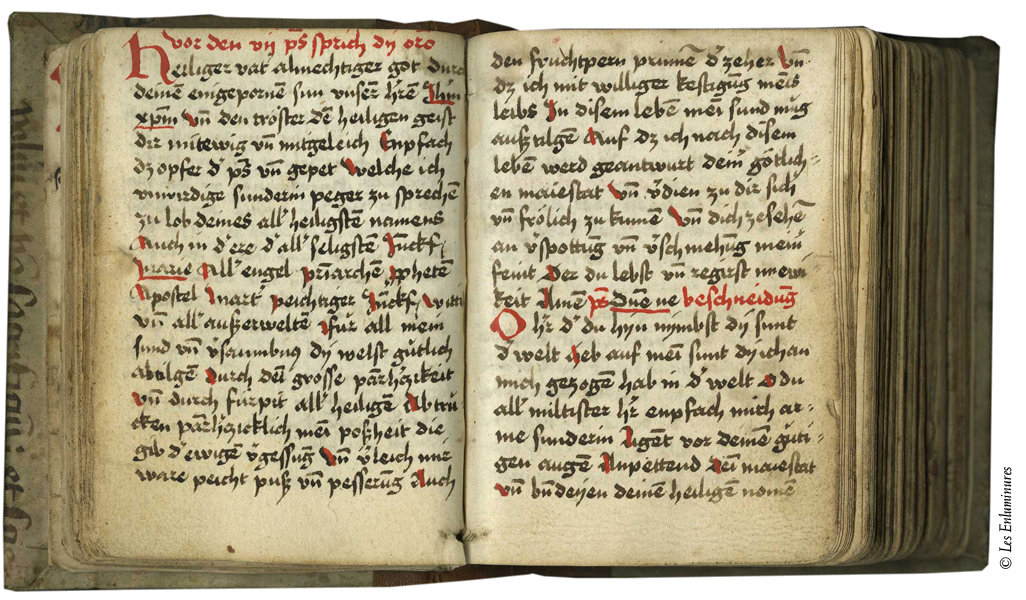 vor den vij ps sprich dy oro
Heiliger vat almechtiger got durch
deinen eingepornē sun vnserꝫ hrēn Ihm
xpm̄ vn̄ den tröster dē heiligen geist
dir mitewig vn̄ mitgeleich Enpfach
dz opfer d' ps vn̄ gepet Welche ich
vnwirdige sunderin peger zu sprechen
zu lob deines all' heiligstē namens
Auch in d' ere d' all' seligstē Junckf
marie All' engel priarchē pphetē
Apostel Mart' peichtiger Junckf Witti
vn̄ all' außerwelten für all mein
sund vn̄ v'saumbnus dy welst gütlich
abtilgē Durch dei grosse parhꝫikeit
vn̄ durch fürpit all' heiligē Abtru
cken parhꝫicklich mei poßheit die
gib d' ewigen v'gessug vn̄ v'leich mir
ware peicht puß vn̄ pesserūg Auch
den fruchtpern prunnē d' zeher vn̄
dz ich mit williger kestigūg meīs
leibs In disem lebē mei sund mug
auß tilgē Auf dz ich nach disem
lebē werd geantwurt dem götlich-
en maiestat vn̄ v'dien zu dir sich
vn̄ frölich zu kumē vn̄ dich zesehē
an v'spottūg vn̄ v'schmehūg mein'
feint Der du lebst vn̄ regirst in ewi
keit Amē ps Dn̄e ne beschneidūg
O hr' d' du hyn nymbst dy sunt
d' welt heb auf mei sunt dy ich an
mich geꝫogē hab in d' welt O du
all' miltister hr' enpfach mich ar-
me sunderin ligēt vor deinē güti-
gen augē Anpettend dei maiestat
vn̄ deinē heiligē nomē
© Les Enluminures